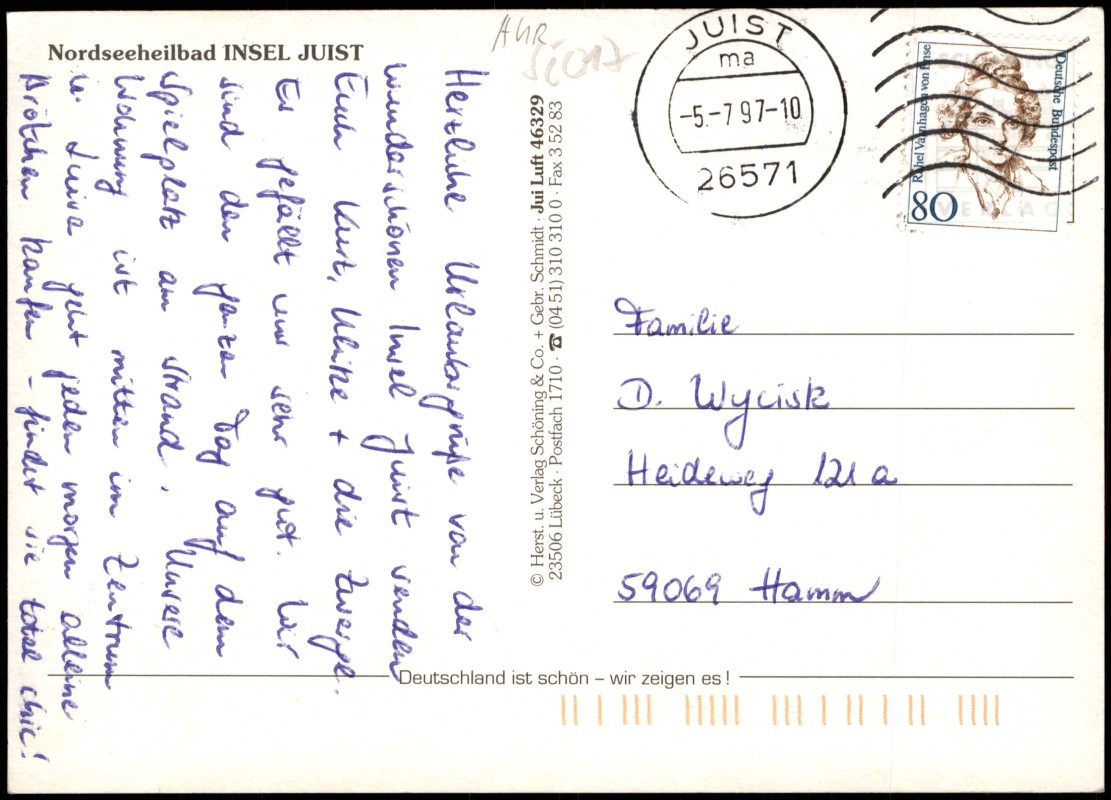 Nordseeheilbad INSEL JUIST
Herzliche Urlaubsgrüße von der
wunderschönen Insel Juist senden
Euch Kurt, Ulrike + die Zwerge.
Es gefällt uns sehr gut. Wir
sind den ganzen Tag auf dem
Spielplatz am Strand. Unsere
Wohnung ist mitten im Zentrum
u. Luisa geht jeden morgen alleine
Brötchen kaufen – findet sie total chic!
© Herst. u. Verlag Schöning & Co. + Gebr. Schmidt · Jui Luft 46329
23506 Lübeck · Postfach 1710 · ☎ (04 51) 310 310 0 · Fax 3 52 83
JUIST
ma
-5.-7 97-10
26571
Rahel Varnhagen von Ense
Deutsche Bundespost
80
VERLAG
Familie
D. Wycisk
Heideweg 121 a
59069 Hamm
Deutschland ist schön – wir zeigen es!